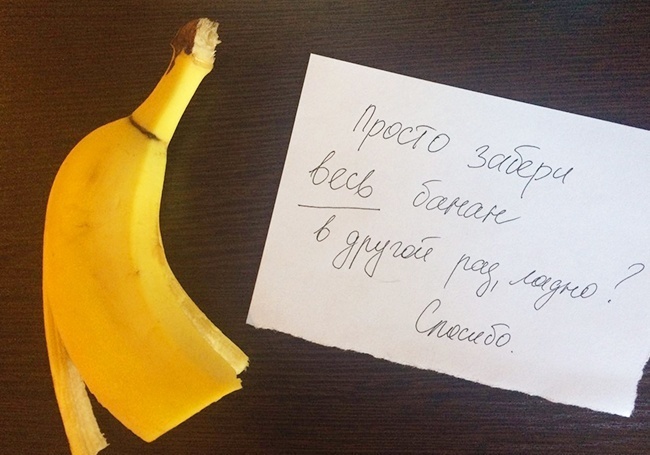 Просто забери
весь банан
в другой раз, ладно?
Спасибо.